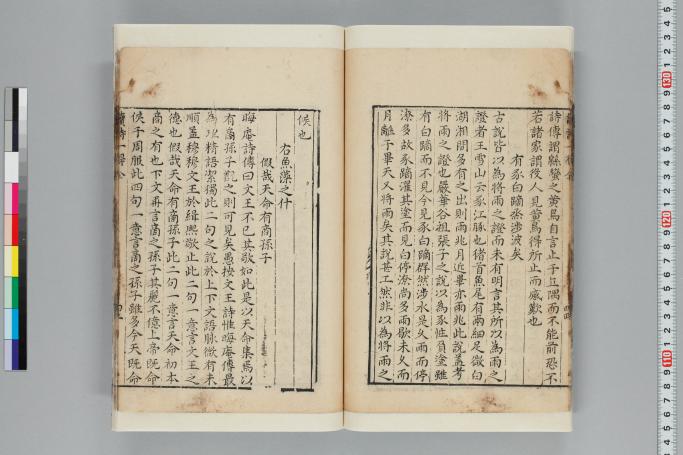 詩傳謂緜蠻之黄鳥自言止于丘隅而不能前恐不
若諸家謂役人見黄鳥得所止而感歎也
有豕白蹢烝涉波矣
古說皆以為將雨之證而未有明言其所以為雨之
證者王雪山云豕江豚也猪首魚尾有兩細足欲白
湖湘間多有之出則雨兆月近畢亦雨兆此說蓋考
將雨之證也嚴華谷祖張子之說以為豕性負塗雖
有白蹢而不見今見豕白蹢群然涉水是久雨而停
潦多故豕蹢濯其塗而見白停潦尚多雨歇未久而
月離于畢天又將雨矣其說甚工然非以為將雨之
侯也
右魚藻之什
假哉天命有商孫子
晦庵詩傳曰文王不已其敬如此是以天命集焉以
有商孫子觀之則可見矣愚按文王詩惟晦庵傳最
為玅精語潔獨此二句之說於上下文語脉微有未
順蓋穆穆文王於緝熙敬止此二句一意言文王之
德也假哉天命有商孫子此二句一意言天命初本
商之有也下文再言商之孫子其麗不億上帝既命
侯于周服此四句一意言商之孫子雖多今天既命